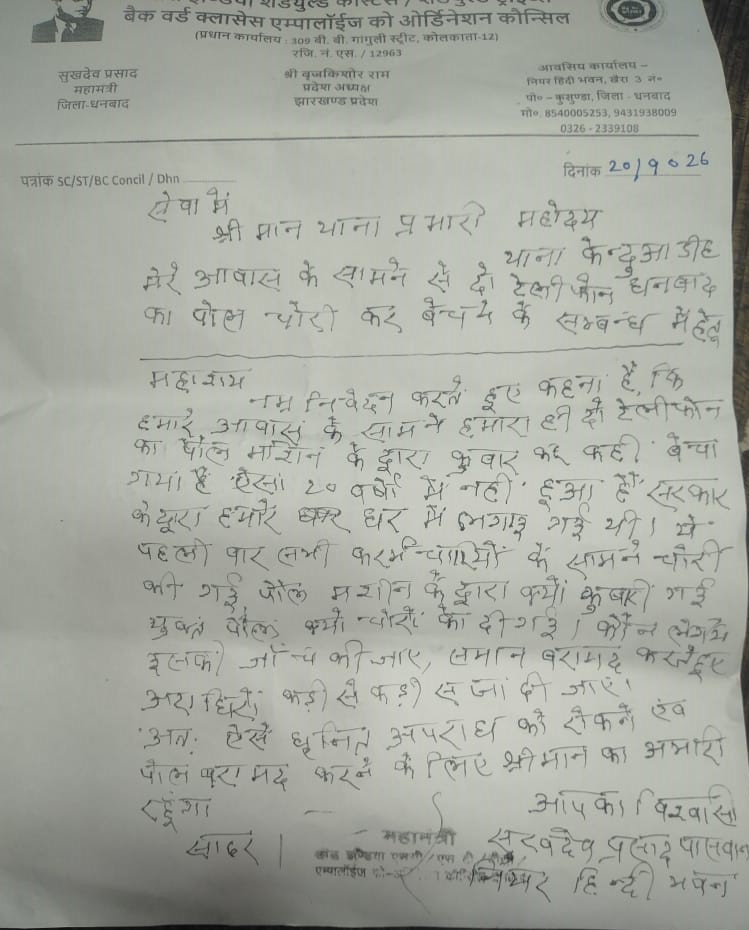 बैक वर्ड क्लासेस एम्पालॉईज को ऑर्डिनेशन कौन्सिल
(प्रधान कार्यालय : 309 बी. बी. गांगुली स्ट्रीट, कोलकाता-12)
रजि. नं. एस. / 12963
सुखदेव प्रसाद
महामंत्री
जिला-धनबाद
श्री बृजकिशोर राम
प्रदेश अध्यक्ष
झारखण्ड प्रदेश
आवसिय कार्यालय –
नियर हिंदी भवन, खैरा 3 नं०
पो० – कुसुण्डा, जिला - धनबाद
मो०. 8540005253, 9431938009
0326 - 2339108
पत्रांक SC/ST/BC Concil / Dhn
दिनांक 20/9026
सेवा में
श्री मान थाना प्रभारी महोदय
थाना केन्दुआडीह
मेरे आवास के सामने से दो टेलीफोन धनबाद
का पोल चोरी कर बेचने के सम्बन्ध में हेतू
महाशय
नम्र निवेदन करते हुए कहना है, कि
हमारे आवास के सामने हमारा ही दो टेलीफोन
का पोल मशिन के द्वारा कुबार कर कही बेचा
गया है ऐसा २० वर्षो में नही हुआ है सरकार
के द्वारा हमारे घर में लगाई गई थी। ये
पहली बार सभी कर्मचारियों के सामने चोरी
की गई पोल मशीन के द्वारा क्यों कुबारी गई
पोल क्यो चोरों को दी गई। कौन लेगये
इसकी जाँच की जाए, समान बरामद करते हुए
कड़ी से कड़ी सजा दी जाए।
अतः ऐसे घृनित अपराध को रोकने एवं
पोल बरामद करने के लिए श्रीमान का अभारी
रहूँगा
आपका विश्वासी
सादर।
महामंत्री
सुखदेव प्रसाद पासवान
नियर हिन्दी भवन